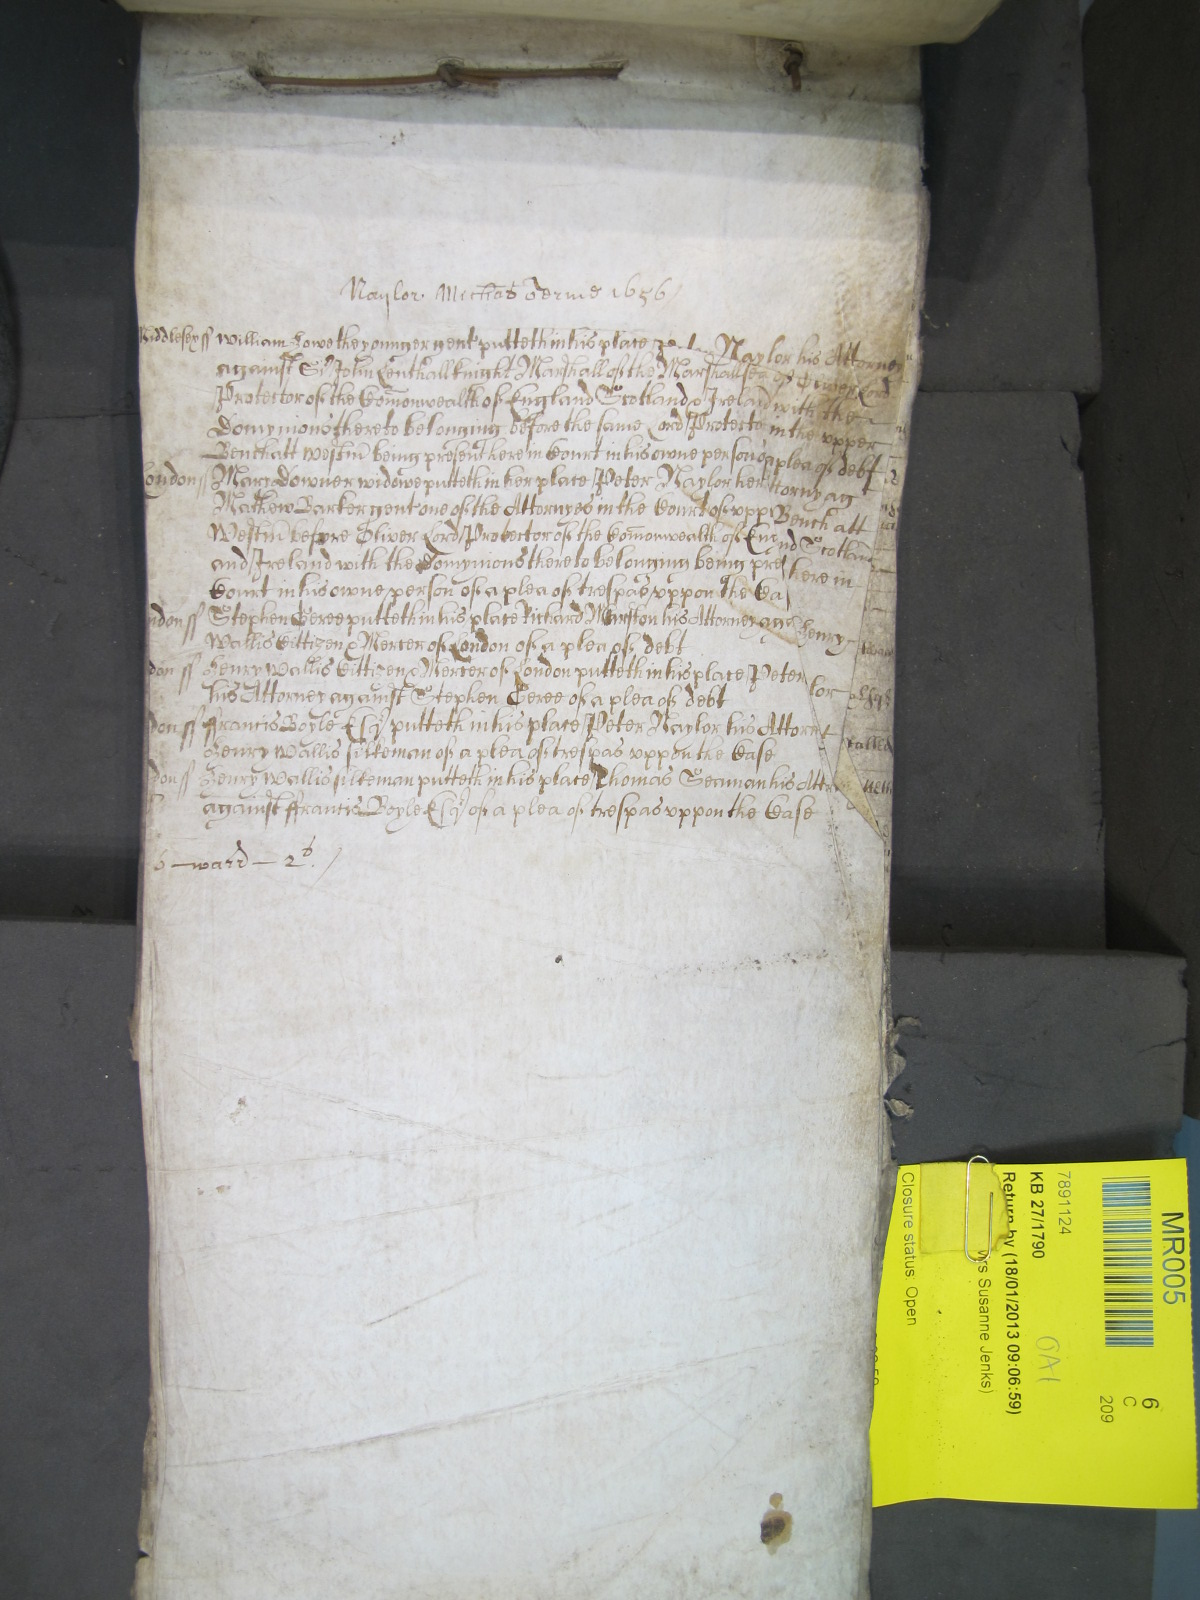 Naylor Michās Terme 1656
Middlesex ss William Lowe the younger gent putteth in his place Naylor his Attorney
against Sr John Lenthall knight Marshall of the Marshallsea of Lord
Protector of the Comonwealth of England Scotland & Ireland with the
Domynions thereto belonging before the same Lord Protector in the upper
Bench att Westm̄ being present here in Court in his owne person of a plea of debt
London ss Mary Downer widowe putteth in her place Peter Naylor her Attorney ag
Mathew Barker gent one of the Attornyes in the Court of upp Bench att
Westm̄ before Oliver Lord Protector of the Comonwealth of England Scotland
and Ireland with the Domynions thereto belonging being pre here in
Court in his owne person of a plea of trespas uppon the Ca
ndon ss Stephen Geree putteth in his place Richard Marston his Attorney agt Henry
Wallis Cittizen & Mercer of London of a plea of debt
don ss Henry Wallis Cittizen & Mercer of London putteth in his place Peter lor
his Attorney against Stephen Geree of a plea of debt
don ss Francis Boyle Esqr putteth in his place Peter Naylor his Attorn
Henry Wallis silkeman of a plea of trespas uppon the Case
don ss Henry Wallis silkeman putteth in his place Thomas Seaman his Attr
against Francis Boyle Esqr of a plea of trespas uppon the Case
6 — warr — 2d
MR005
6
C
209
7891124
KB 27/1790
OA1
Return by (18/01/2013 09:06:59)
Mrs Susanne Jenks)
Closure status: Open